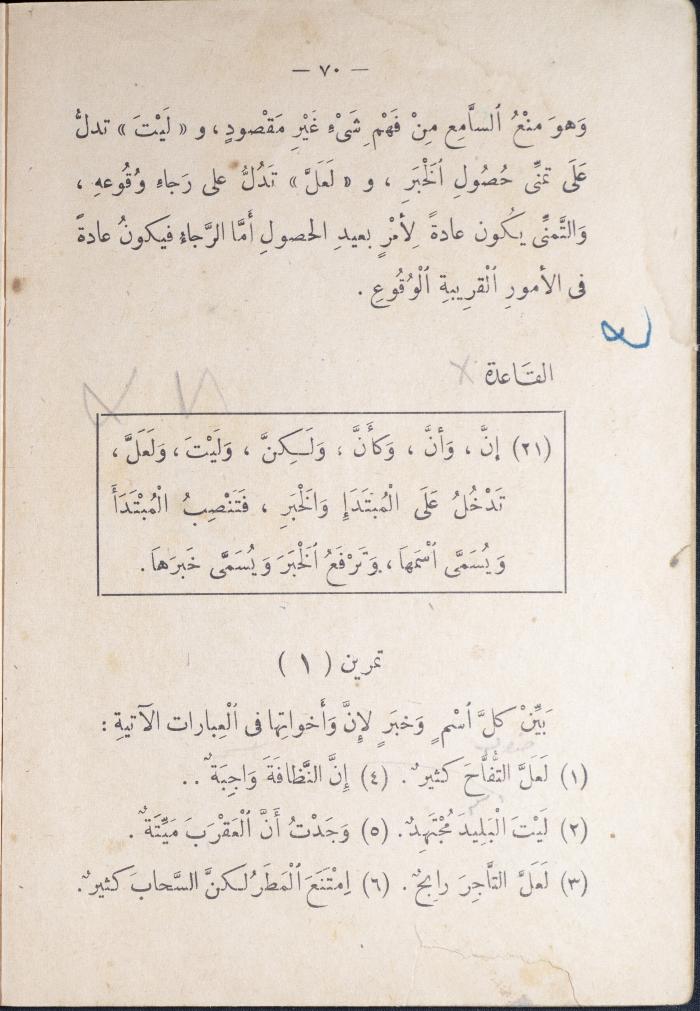 — ٧٠ —
وَهوَ منْعُ ٱلسَّامِع مِنْ فَهْمِ شَىْءٍ غَيْرِ مَقْصودٍ، و « لَيْتَ » تدلُّ
عَلَى تَمنِّى حُصُولِ ٱلْخَبَرِ ، و « لَعَلَّ » تَدُلُّ على رَجاءِ وُقُوعهِ ،
وَالتَّمنِّى يكُون عادةً لِأَمْرٍ بعيدِ الحصولِ أَمَّا الرَّجاءُ فيكونُ عادةً
فى الأمورِ ٱلْقَرِيبةِ ٱلْوُقُوعِ .
القَاعدة
(٢١) إنَّ ، وَأنَّ ، وَكأَنَّ ، وَلَـكِنَّ ، وَلَيْتَ، وَلَعَلَّ،
تَدْخُلُ عَلَى الْمُبْتَدَإِ وَالْخَبَرِ ، فَتَنْصِبُ الْمُبْتَدَأَ
وَيُسَمَّى ٱسْمَهاَ، وَتَرْفَعُ ٱلْخَبَرَ وَيُسَمَّى خَبَرَهاَ.
تمرين ( ١ )
بَيِّنْ كلَّ ٱسْمٍ وَخبَرٍ لإِنَّ وَأَخواتِها فى ٱلْعِبارات الآتيةِ :
(١) لَعَلَّ التُّفَّاحَ كثيرٌ. (٤) إِنَّ النَّظافَةَ وَاجِبَةٌ ..
(٢) لَيْتَ الْبَلِيدَ مُجْتَهِدٌ. (٥) وَجَدْتُ أَنَّ ٱلْعَقْرَبَ مَيِّتَةٌ .
(٣) لَعَلَّ التَّاجِرَ رابِحٌ. (٦) اِمْتَنَعَ ٱلْمَطَرُ لـكنَّ السَّحابَ كثيرٌ.